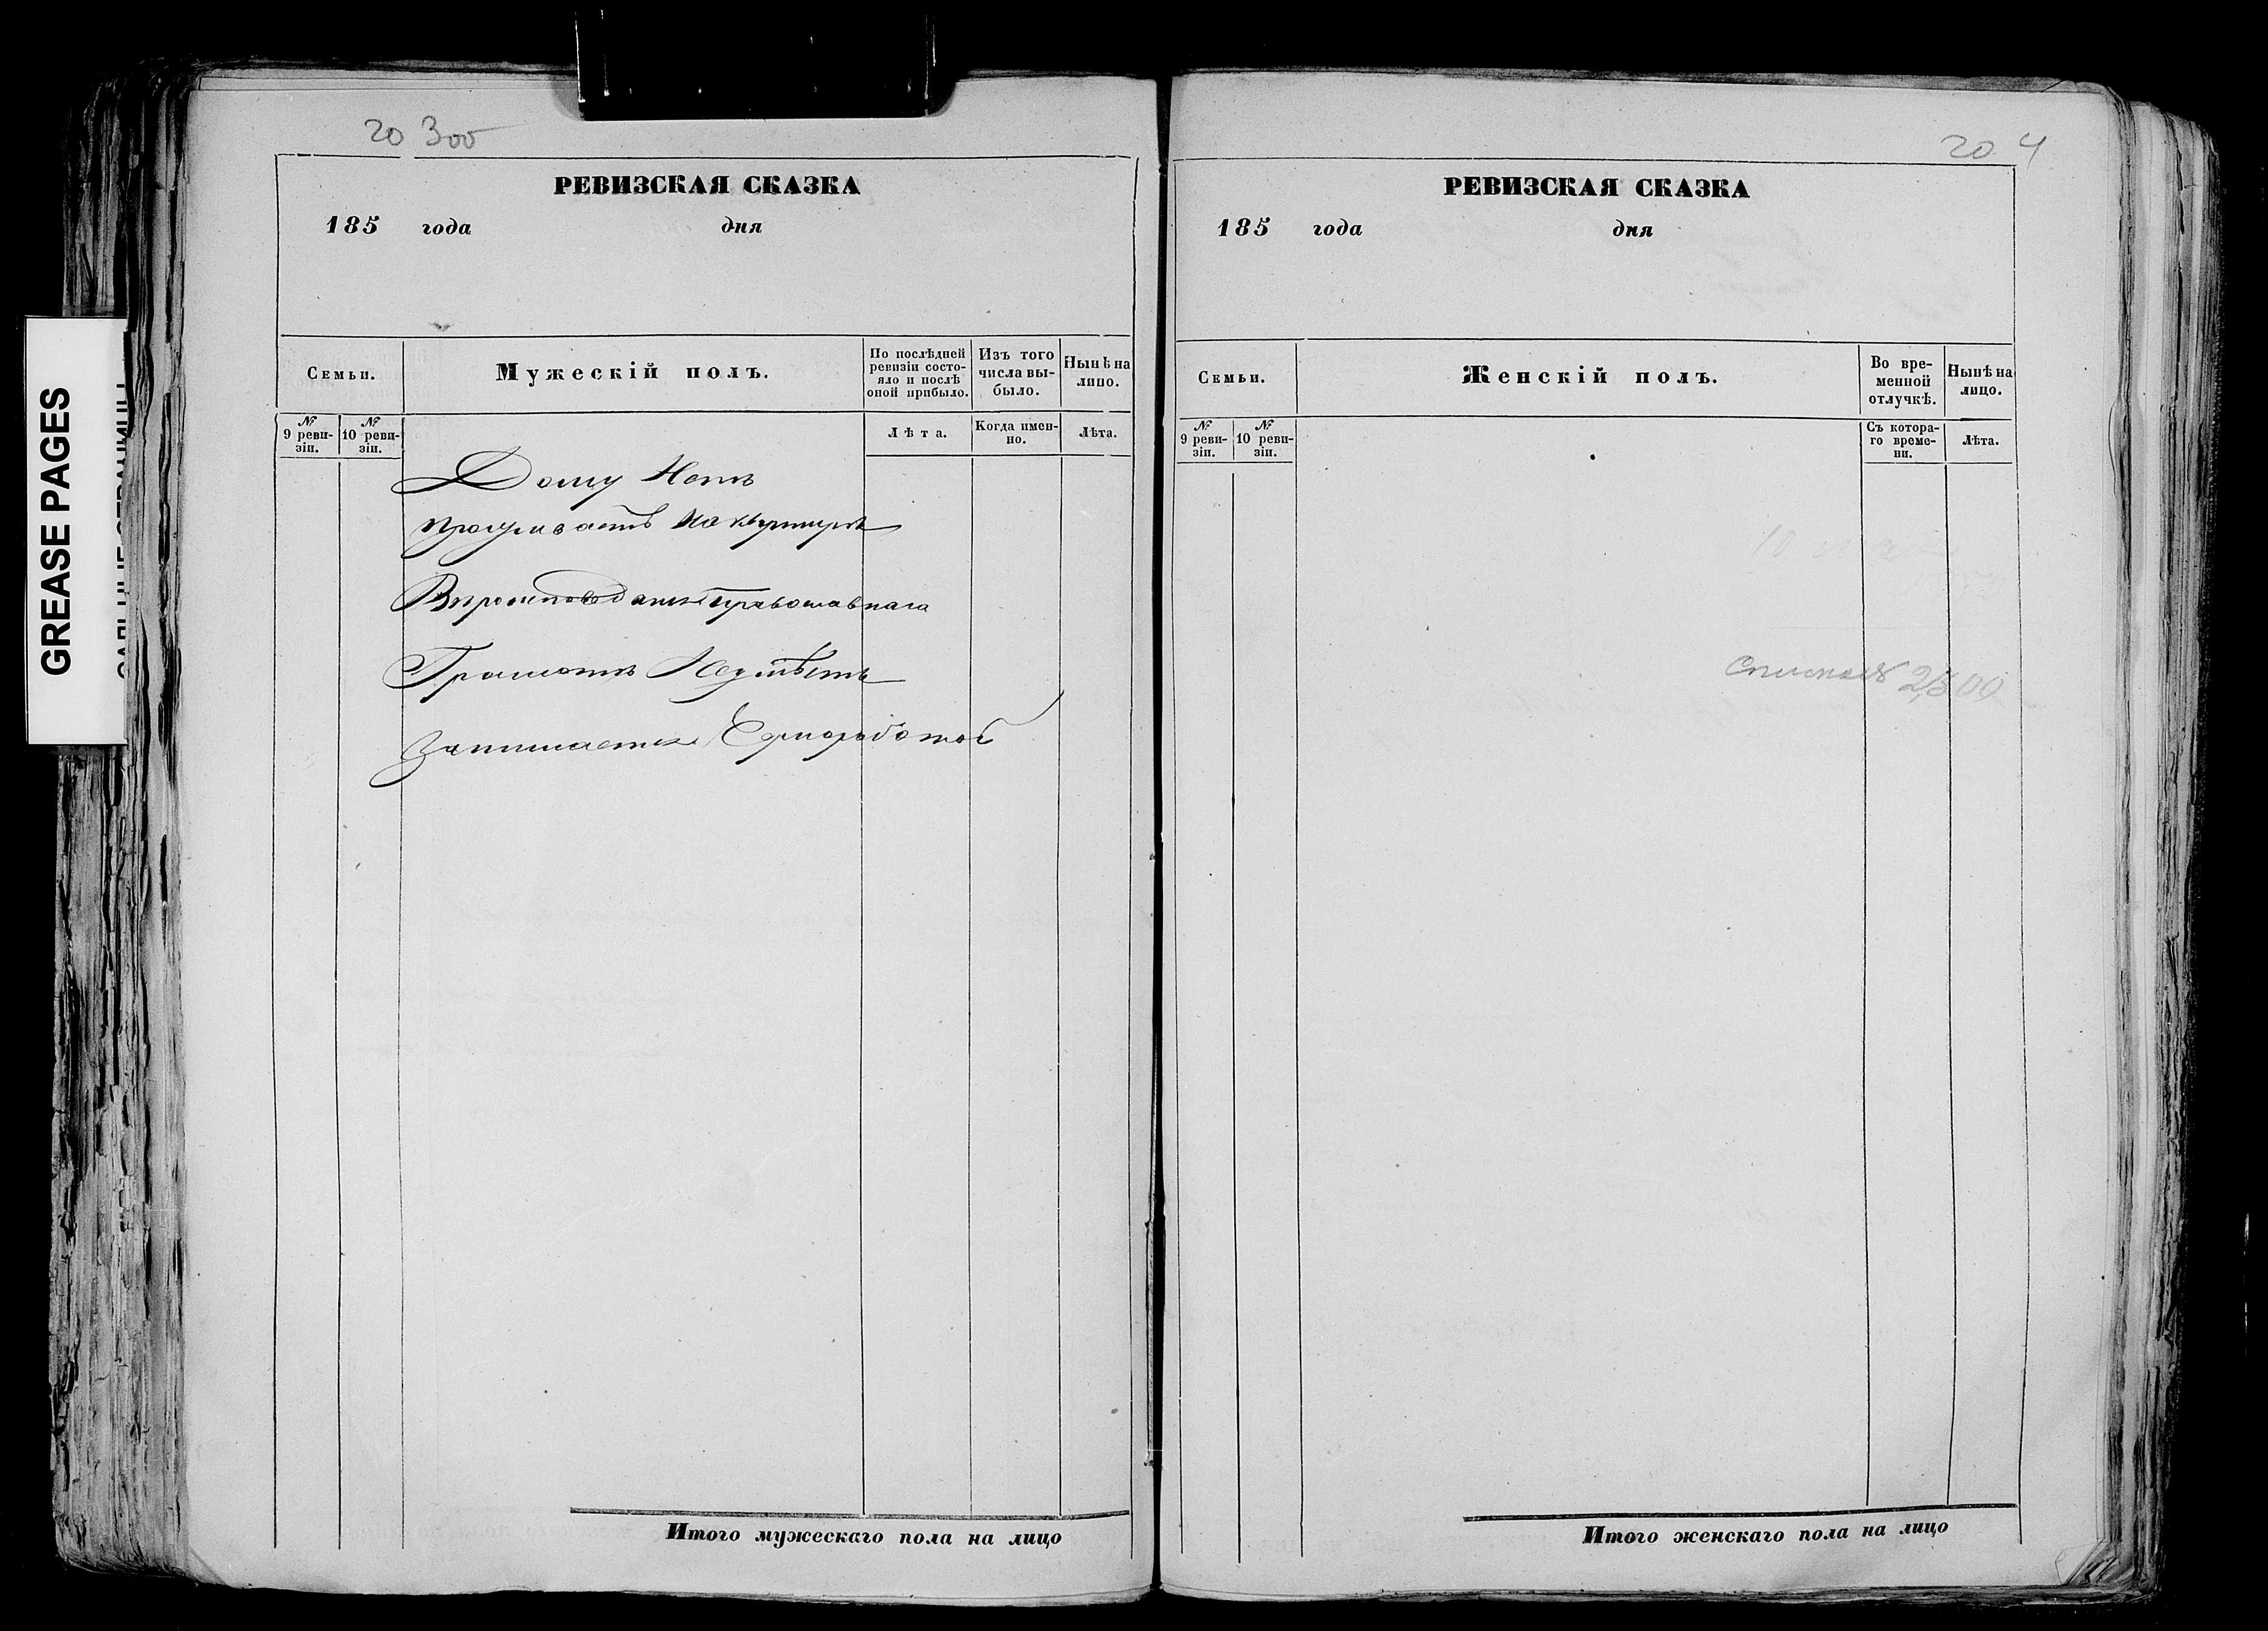 GREASE PAGES
20 300
РЕВИЗСКАЯ СКАЗКА
185 года дня
Семьи.
Мужескій полъ.
По послѣдней ревизіи состо-
яло и послѣ
оной прибыло.
Изъ того
числа вы-
было.
Нынѣ на
лицо.
№ 9 реви-
зіи.
№ 10 реви-
зіи.
Лѣта.
Когда имен-
но.
Лѣта.
Дому Нетъ
проживаетъ на квартире
Вѣроисповеданія Православнаго
Грамоте Неумѣетъ
Занимается Чорноработой
Итого мужескаго пола на лицо
20 4
РЕВИЗСКАЯ СКАЗКА
185 года дня
Семьи.
Женскій полъ.
Во вре-
менной
отлучкѣ.
Нынѣ на
лицо.
№ 9 реви-
зіи.
№ 10 реви-
зіи.
Съ котора-
го време-
ни.
Лѣта.
2,500
Итого женскаго пола на лицо